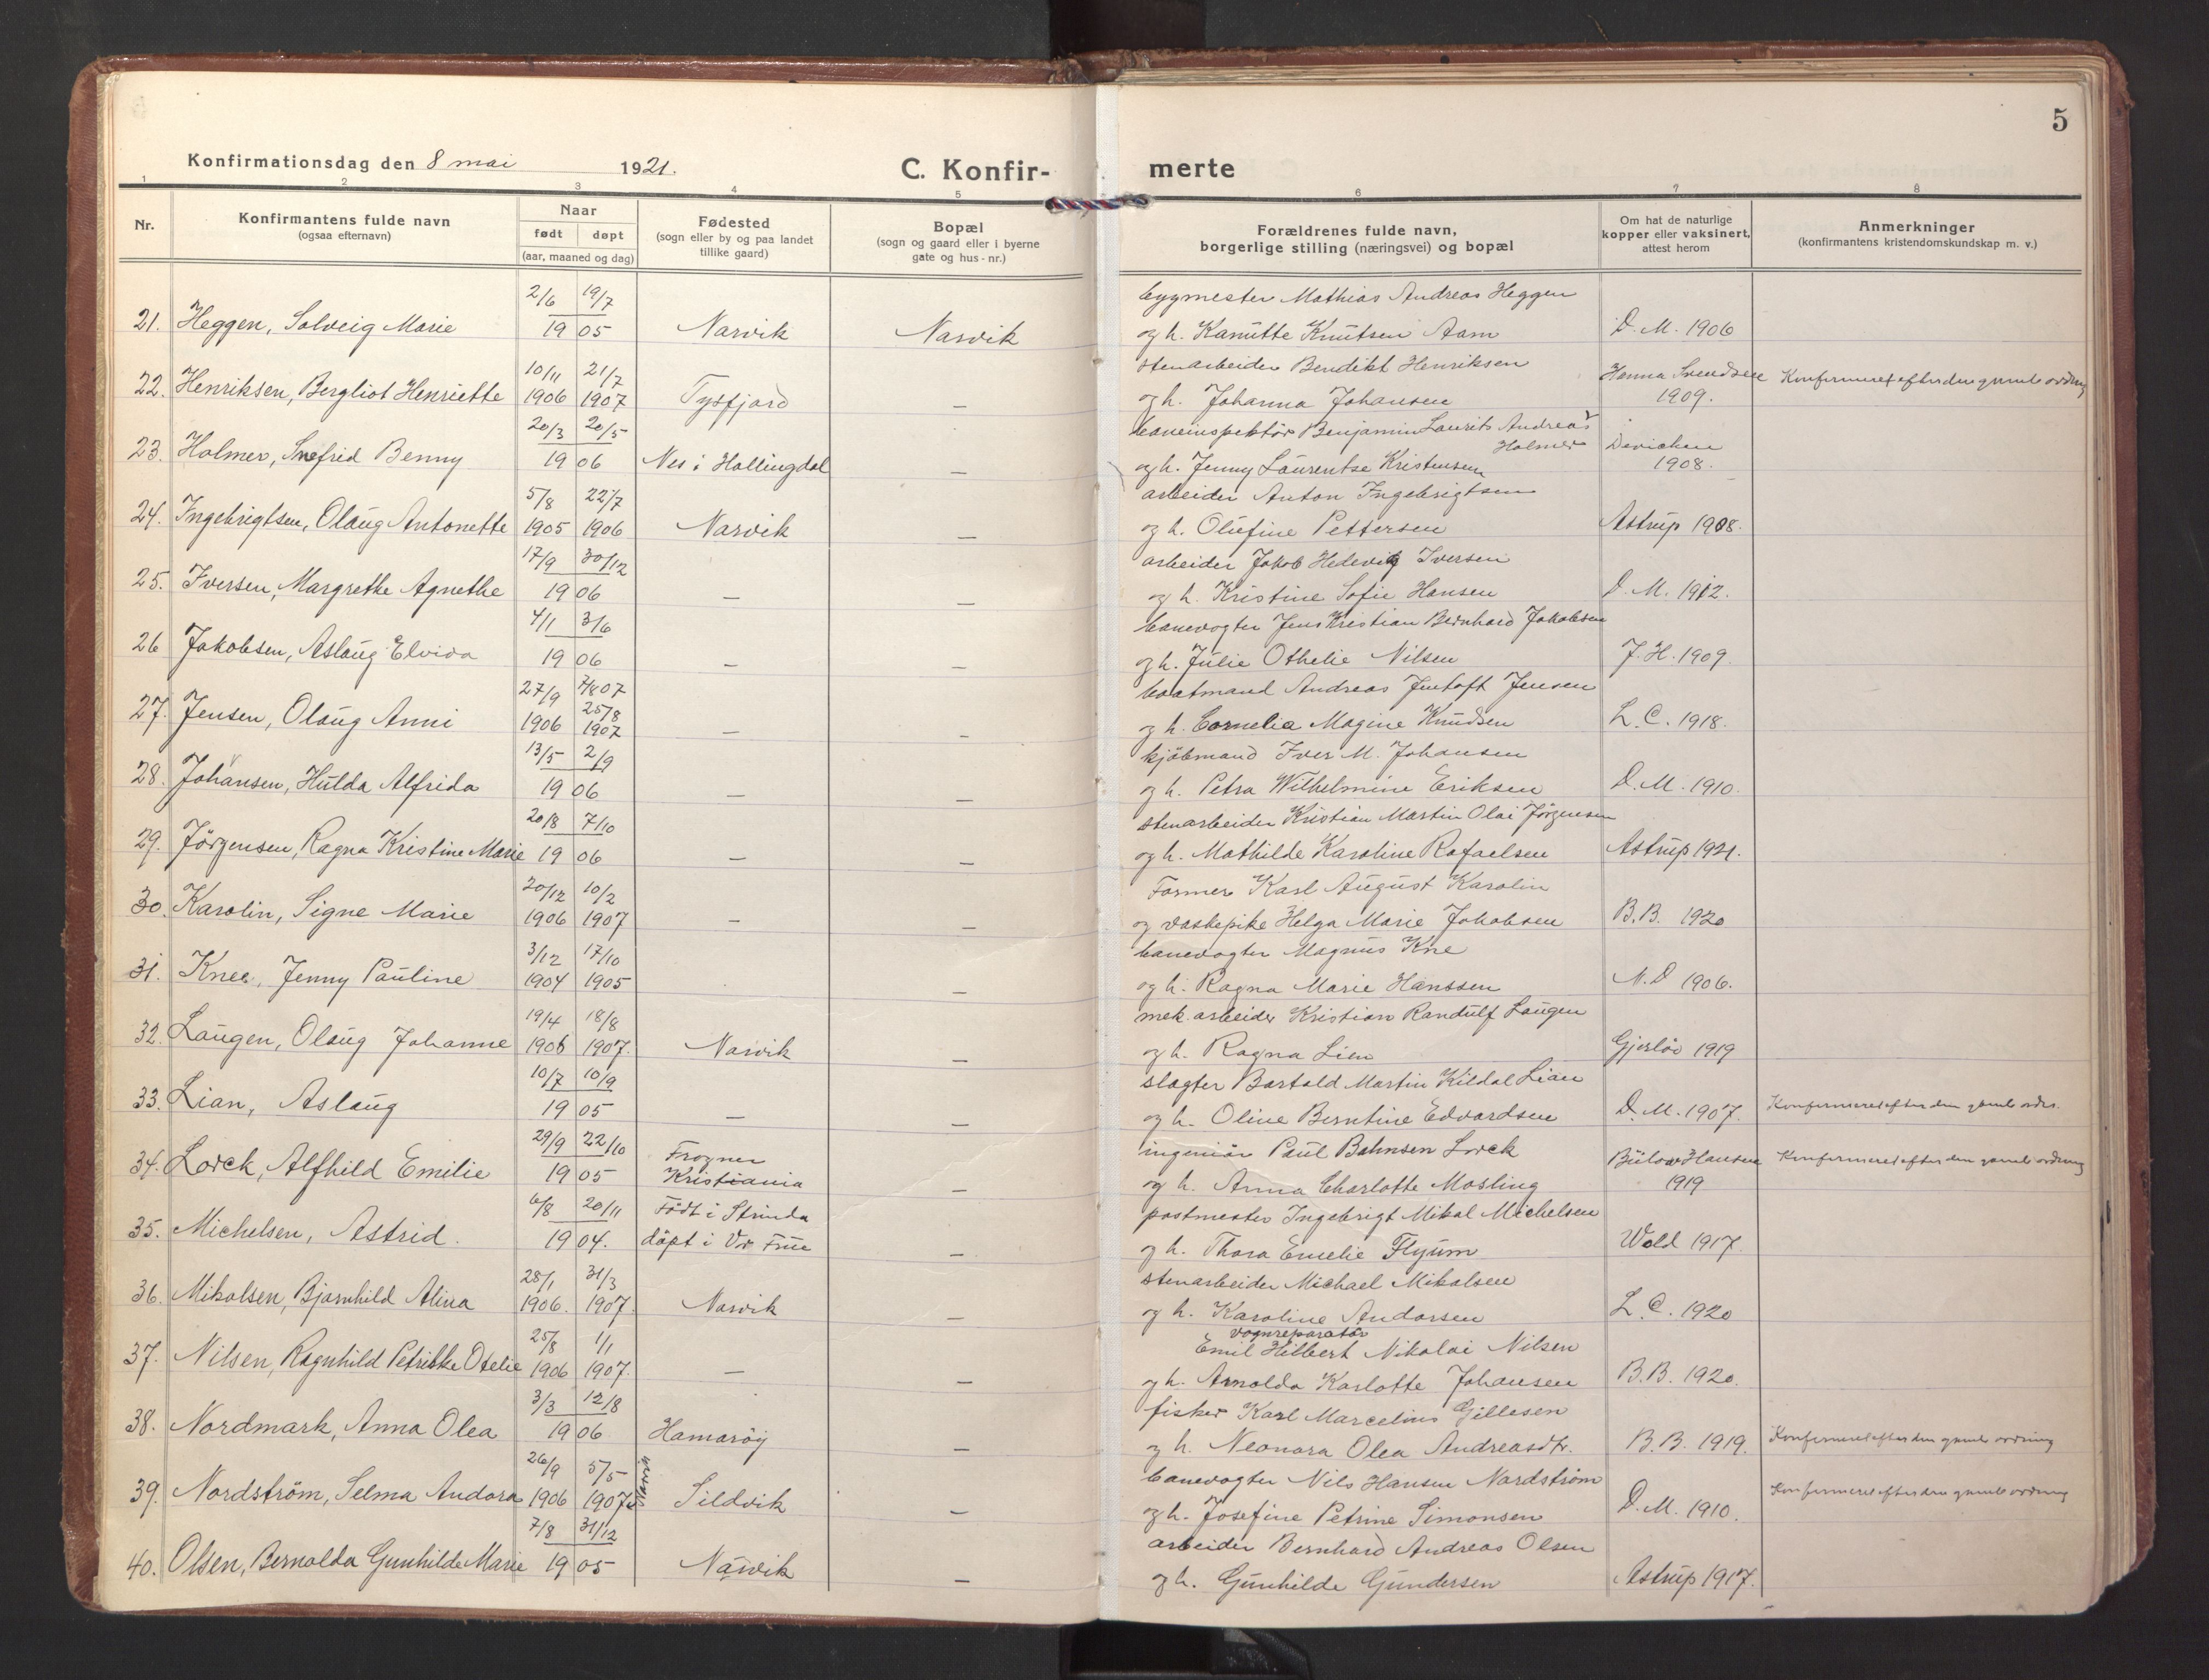 5
Konfirmationsdag den 8 mai 1921.
C. Konfir-
merte
1 2 3 4 5 6 7 8
Nr.
Konfirmantens fulde navn
(ogsaa efternavn)
Naar
født døpt
(aar, maaned og dag)
Fødested
(sogn eller by og paa landet
tillike gaard)
Bopæl
(sogn og gaard eller i byerne
gate og hus-nr.)
Forældrenes fulde navn,
borgerlige stilling (næringsvei) og bopæl
Om hat de naturlige
kopper eller vaksinert,
attest herom
Anmerkninger
(konfirmantens kristendomskundskap m. v.)
2/6 19/7 bygmester Mathias Andreas Heggen
21. Heggen, Solveig Marie 19 05 Narvik Narvik og h. Kanutte Knutsen Aam D. M. 1906
10/11 21/7 stenarbeider Bendikt Henriksen
22. Henriksen, Bergliot Henriette 1906 1907 Tysfjord — og h. Johanna Johansen Hanna Svendsen 1909. Konfirmeret efter den gamle ordning
20/3 20/5 baneinspektör Benjamin Laurits Andreas Holmer
23. Holmer, Snefrid Benny 19 06 Nes i Hallingdal — og h. Jenny Laurentse Kristensen Devichen 1908.
5/8 22/7 arbeider Anton Ingebrigtsen
24. Ingebrigtsen, Olaug Antonette 1905 1906 Narvik — og h. Olufine Pettersen Astrup 1908.
17/9 30/12 arbeider Jakob Hedevig Iversen
25. Iversen, Margrethe Agnethe 19 06 — — og h. Kristine Sofie Hansen D. M. 1912.
4/1 3/6 banevogter Jens Kristian Bernhard Jakobsen
26 Jakobsen, Aslaug Elvida 19 06 — — og h. Julie Othelie Nilsen J. H. 1909.
27/9 7/8 07 baatmand Andreas Jentoft Jensen
27. Jensen, Olaug Anni 1906 25/8 1907 — — og h. Cornelia Magine Knudsen L. C. 1918.
13/5 2/9 kjöbmand Iver M. Johansen
28. Johansen, Hulda Alfrida 19 06 — — og h. Petra Wilhelmine Eriksen D. M. 1910.
20/8 7/10 stenarbeider Kristian Martin Olai Jörgensen
29. Jörgensen, Ragna Kristine Marie 19 06 — — og h. Mathilde Karoline Rafaelsen Astrup 1921.
20/12 10/2 Former Karl August Karolin
30. Karolin, Signe Marie 1906 1907 — — og vaskepike Helga Marie Jakobsen B. B. 1920
3/12 17/10 banevogter Magnus Kne
31. Knee, Jenny Pauline 1904 1905 — og h. Ragna Marie Hanssen M. D 1906.
19/4 18/8 mek. arbeider Kristian Randulf Laugen
32. Laugen, Olaug Johanne 1906 1907. Narvik — og h. Ragna Lien Gjerlöv 1919
10/7 10/9 slagter Bartold Martin Kildal Lian
33. Lian, Aslaug 19 05 — — og h. Oline Berntine Edvardsen D. M. 1907. Konfirmeret efter den gamle ordn.
29/9 22/10 Frogner ingeniör Paul Bahnsen Lorck
34. Lorck, Alfhild Emilie 19 05 Kristiania — og h. Anna Charlotte Mosling Bülow Hansen 1919 Konfirmeret efter den gamle ordning
6/8 20/11 Födt i Strinda postmester Ingebrigt Mikal Michelsen
35. Michelsen, Astrid. 19 04. döpt i Vor Frue — og h. Thora Emelie Flyum Wold 1917.
28/1 31/3 stenarbeider Michael Mikalsen
36. Mikalsen, Bjarnhild Alina 1906. 1907. Narvik — og h. Karoline Andorsen L. C. 1920
25/8 1/1 vognreparatör Emil Hilbert Nikolai Nilsen
37. Nilsen, Ragnhild Petrikke Otelie 1906 1907. — — og h. Arnolda Karlotte Johansen B. B. 1920.
3/3 12/8 fisker Karl Marcelius Gillesen
38. Nordmark, Anna Olea 19 06 Hamaröy — og h. Neonora Olea Andreasdtr. B. B. 1919. Konfirmeret efter den gamle ordning
26/9 5/5 Narvik banevogter Nils Hansen Nordström
39. Nordström, Selma Andora 1906 1907 Sildvik — og h. Josefine Petrine Simonsen D. M. 1910. Konfirmeret efter den gamle ordning
7/8 31/12 arbeider Bernhard Andreas Olsen
40. Olsen, Bernolda Gunhilde Marie 19 05 Narvik — og h. Gunhilde Gundersen Astrup 1917.